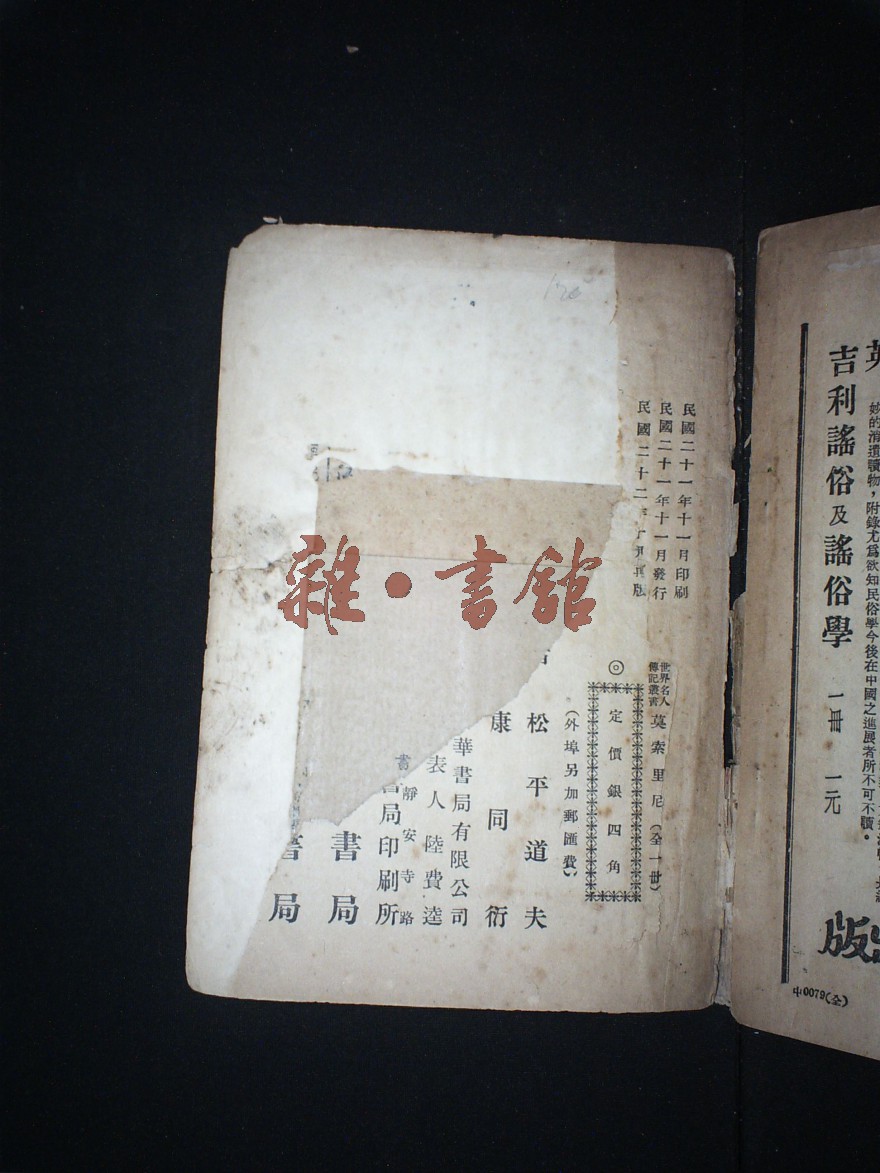 英
吉利謠俗及謠俗學 一冊 一元
妙的消遣瀆物，附錄尤爲欲知民俗學今後在中國之進展者所不可不瀆。
版
中0079(全)
民國二十一年十一月印刷
民國二十一年十一月發行
民國二十二年 月再版
世界名人
傳記叢書
莫索里尼（全一册）
◎定價銀四角
（外埠另加郵匯費）
松平道夫
康同衍
華書局有限公司
表人陸費逵
書局印刷所
靜安寺路
書局
書局
雜·書館